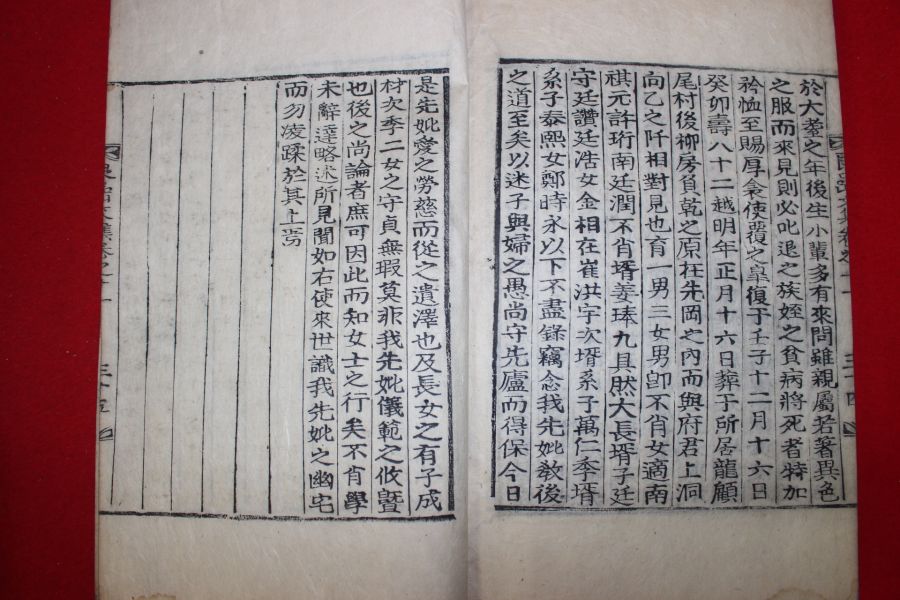 於大耋之年後生小輩多有來問雖親屬若著異色
之服而來見則必叱退之族姪之貧病將死者特加
矜恤至賜厚衾使覆之皐復于壬子十二月十六日
癸卯壽八十二越明年正月十六日葬于所居龍顧
尾村後柳房負乾之原在先岡之內而與府君上洞
向乙之阡相對見也育一男三女男卽不肖女適南
祺元許珩南廷潤不肖壻姜琫九具然大長壻子廷
守廷讚廷浩女金相在崔洪宇次壻系子萬仁季壻
系子泰熙女鄭時永以下不盡錄竊念我先妣敎後
之道至矣以迷子與婦之愚尚守先廬而得保今日
是先妣愛之勞慈而從之遺澤也及長女之有子成
材次季二女之守貞無瑕莫非我先妣儀範之攸曁
也後之尚論者庶可因此而知女士之行矣不肖學
未辭達略述所見聞如右使來世識我先妣之幽宅
而勿凌蹂於其上焉